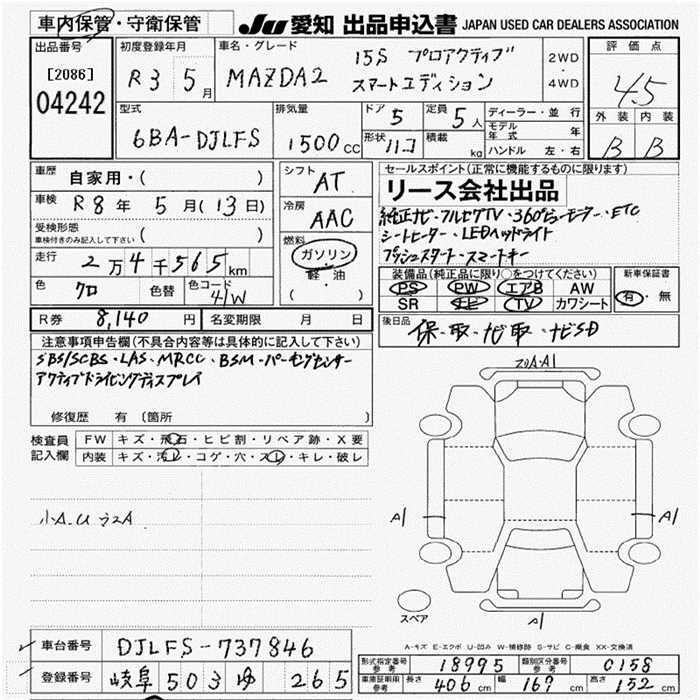 車内保管・守衛保管 JU 愛知 出品申込書 JAPAN USED CAR DEALERS ASSOCIATION
出品番号 [2086] 04242
初度登録年月 R3 5月
車名・グレード MAZDA2 15S プロアクティブ スマートエディション 2WD・4WD
評価点 4.5
外装 内装
B B
型式 6BA-DJLFS
排気量 1500cc
ドア 5 定員 5人
形状 ハコ 積載 kg
ディーラー・並行
モデル年式 年
ハンドル 左・右
車歴 自家用・( )
車検 R8年 5月(13日)
受検形態
車検付きのみ記入して下さい ( )
走行 2万4千565km
色 クロ 色替 色コード 41W
シフト AT
冷房 AAC
燃料 ガソリン・軽・油
( )
セールスポイント(正常に機能するものに限ります)
リース会社出品
純正ナビ・フルセグTV・360°ビューモニター・ETC
シートヒーター・LEDヘッドライト
プッシュスタート・スマートキー
装備品(純正品に限り○をつけてください) 新車保証書
PS PW エアB AW 有・無
SR ナビ TV カワシート
R券 8,140円 名変期限 月 日
後日品 保・取・ナビ取・ナビSD
注意事項申告欄(不具合内容等は具体的に記入して下さい)
SBS/SCBS・LAS・MRCC・BSM・パーキングセンサー
アクティブドライビングディスプレイ
修復歴 有 (箇所 )
検査員記入欄
FW キズ・飛石・ヒビ割・リペア跡・X要
内装 キズ・汚レ・コゲ・穴・スレ・キレ・破レ
小A.U
A1
A1
A1
スペア
A-キズ E-エクボ U-凹み W-補修跡 S-サビ C-腐食 XX-交換済
車台番号 DJLFS-737846
登録番号 岐阜 503 ゆ 265
形式指定番号 参考 18995 類別区分番号 参考 0158
車庫証明用 参考 長さ 406cm 幅 169cm 高さ 152cm